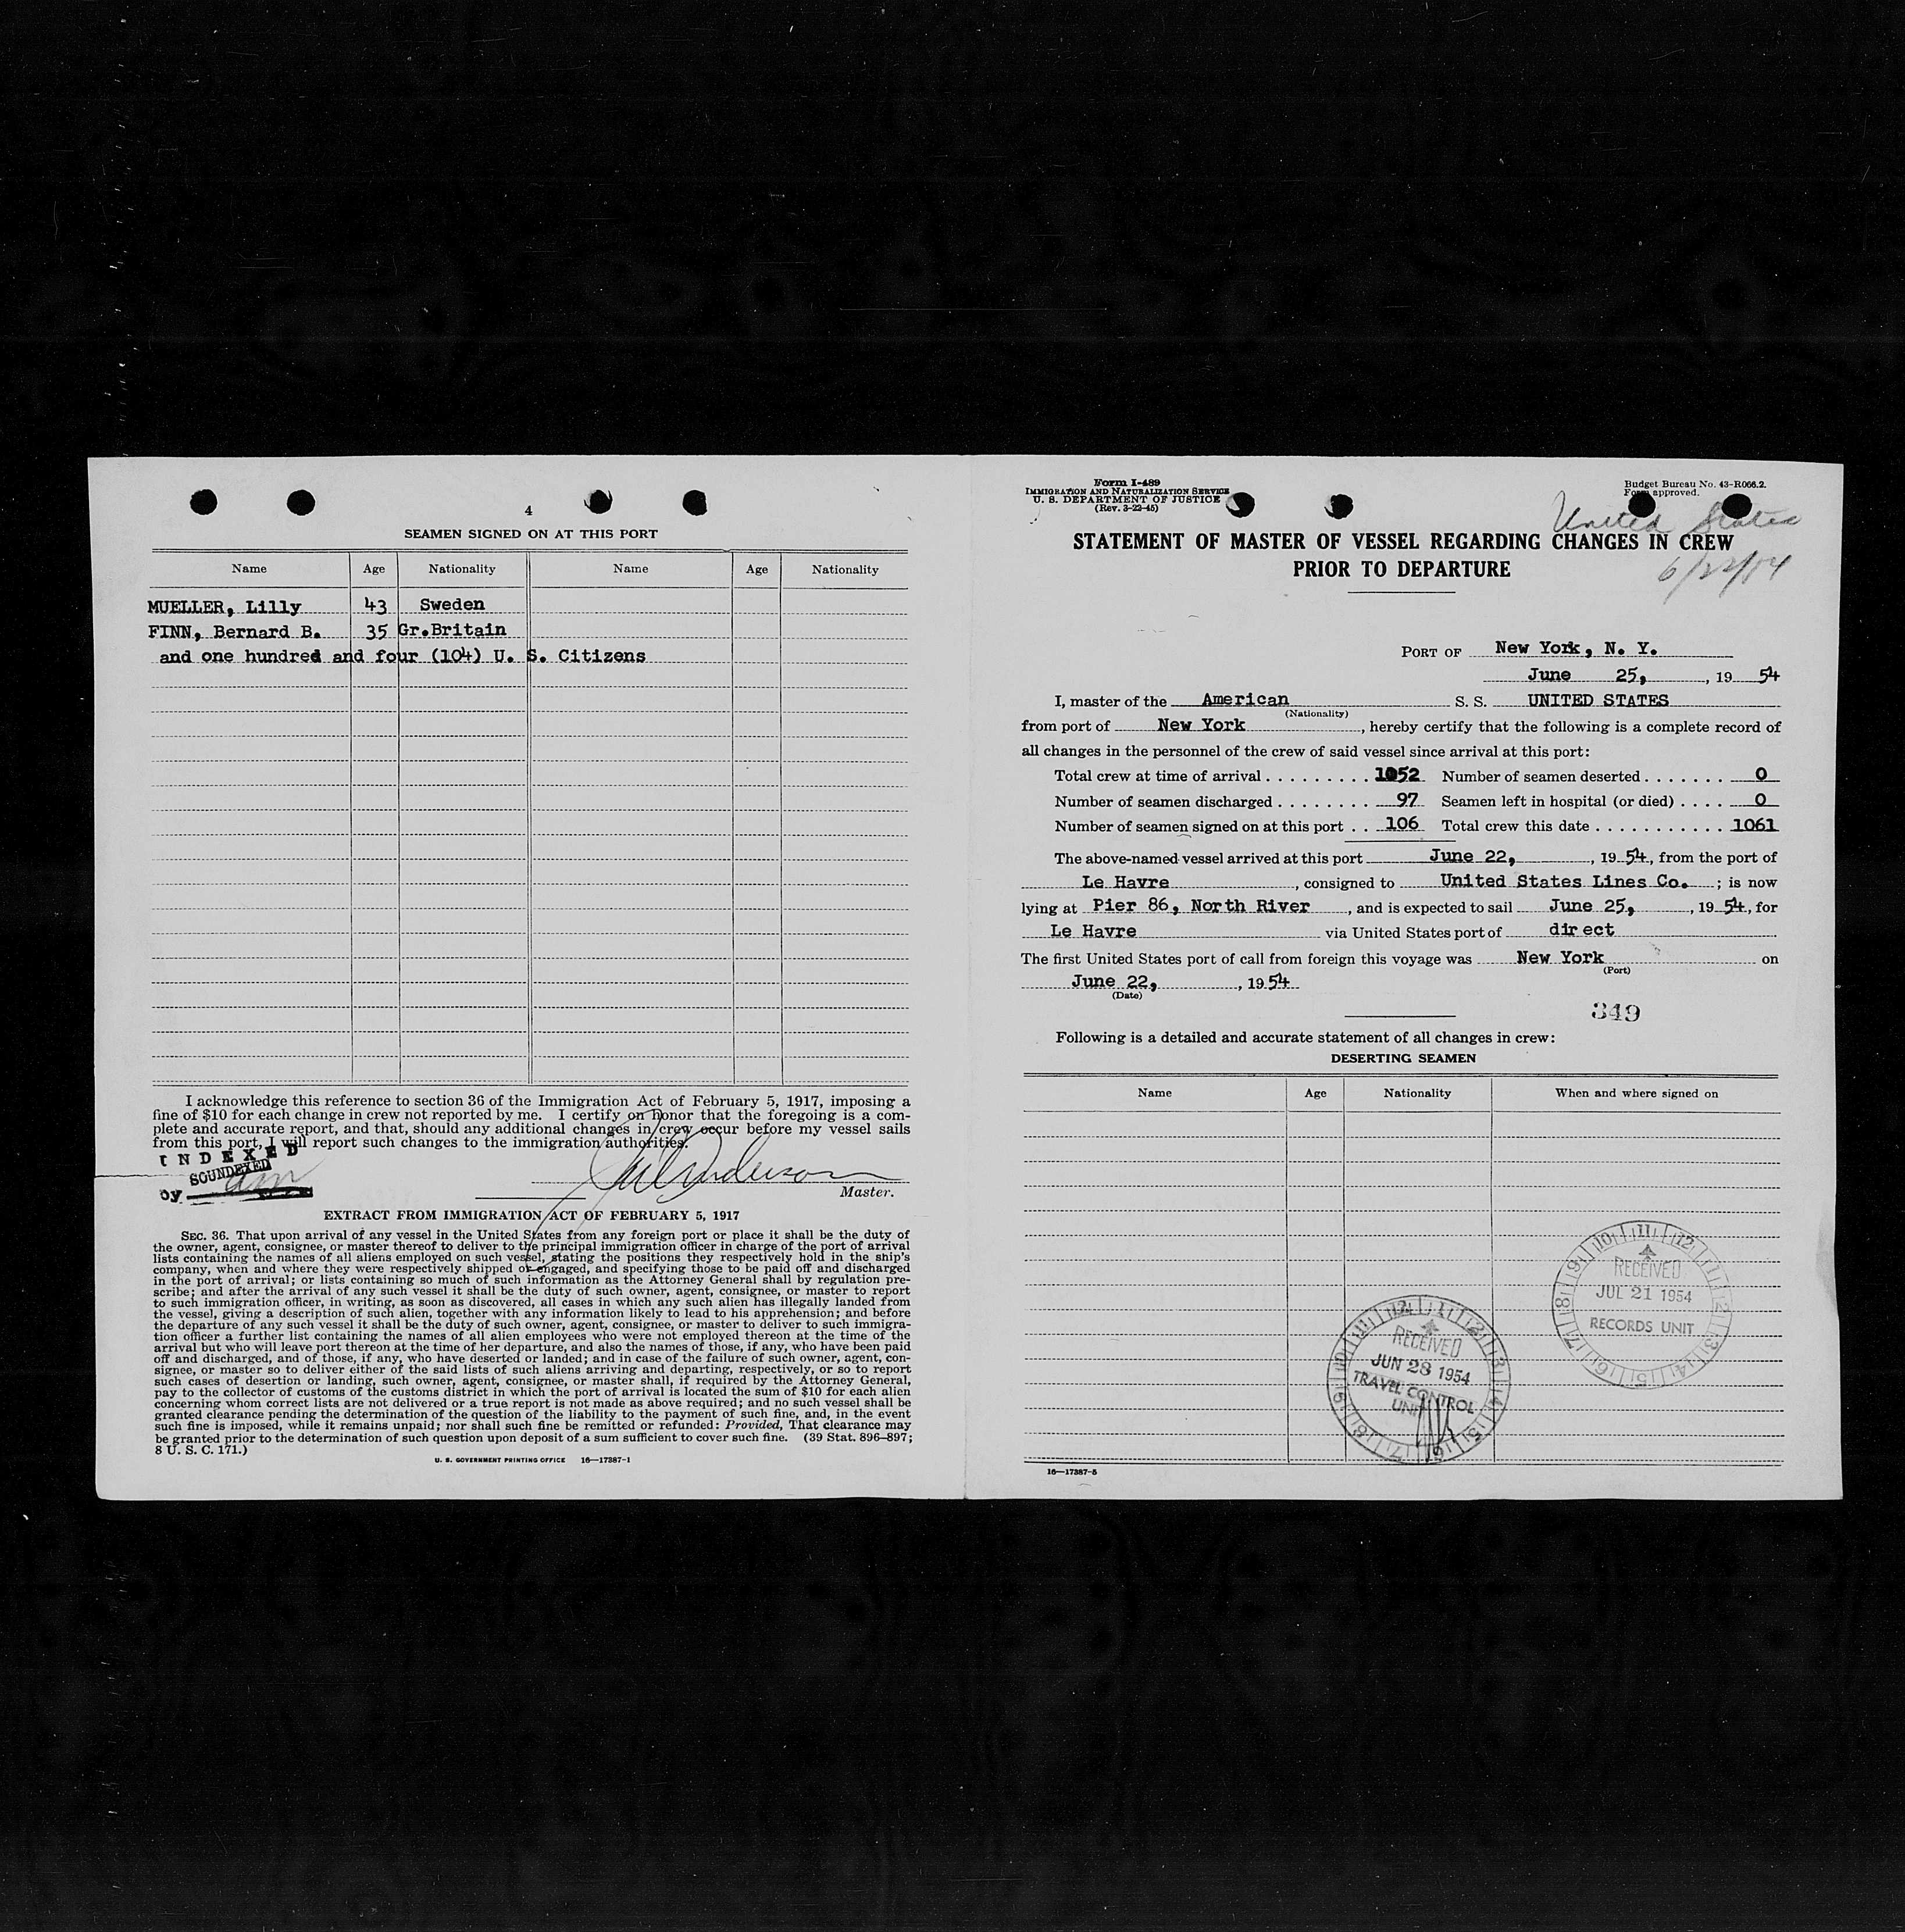 4
SEAMEN SIGNED ON AT THIS PORT
Name Age Nationality Name Age Nationality
MUELLER, Lilly 43 Sweden
FINN, Bernard B. 35 Gr.Britain
and one hundred and four (104) U. S. Citizens
I acknowledge this reference to section 36 of the Immigration Act of February 5, 1917, imposing a
fine of $10 for each change in crew not reported by me. I certify on honor that the foregoing is a com-
plete and accurate report, and that, should any additional changes in crew occur before my vessel sails
from this port, I will report such changes to the immigration authorities.
INDEXED
SOUNDEXED
by
Master.
EXTRACT FROM IMMIGRATION ACT OF FEBRUARY 5, 1917
SEC. 36. That upon arrival of any vessel in the United States from any foreign port or place it shall be the duty of
the owner, agent, consignee, or master thereof to deliver to the principal immigration officer in charge of the port of arrival
lists containing the names of all aliens employed on such vessel, stating the positions they respectively hold in the ship's
company, when and where they were respectively shipped or engaged, and specifying those to be paid off and discharged
in the port of arrival; or lists containing so much of such information as the Attorney General shall by regulation pre-
scribe; and after the arrival of any such vessel it shall be the duty of such owner, agent, consignee, or master to report
to such immigration officer, in writing, as soon as discovered, all cases in which any such alien has illegally landed from
the vessel, giving a description of such alien, together with any information likely to lead to his apprehension; and before
the departure of any such vessel it shall be the duty of such owner, agent, consignee, or master to deliver to such immigra-
tion officer a further list containing the names of all alien employees who were not employed thereon at the time of the
arrival but who will leave port thereon at the time of her departure, and also the names of those, if any, who have been paid
off and discharged, and of those, if any, who have deserted or landed; and in case of the failure of such owner, agent, con-
signee, or master so to deliver either of the said lists of such aliens arriving and departing, respectively, or so to report
such cases of desertion or landing, such owner, agent, consignee, or master shall, if required by the Attorney General,
pay to the collector of customs of the customs district in which the port of arrival is located the sum of $10 for each alien
concerning whom correct lists are not delivered or a true report is not made as above required; and no such vessel shall be
granted clearance pending the determination of the question of the liability to the payment of such fine, and, in the event
such fine is imposed, while it remains unpaid; nor shall such fine be remitted or refunded: Provided, That clearance may
be granted prior to the determination of such question upon deposit of a sum sufficient to cover such fine. (39 Stat. 896–897;
8 U. S. C. 171.)
U. S. GOVERNMENT PRINTING OFFICE 16—17387-1
Form I-489
IMMIGRATION AND NATURALIZATION SERVICE
U. S. DEPARTMENT OF JUSTICE
(Rev. 3-22-45)
Budget Bureau No. 43-R066.2.
Form approved.
United States
6/22/54
STATEMENT OF MASTER OF VESSEL REGARDING CHANGES IN CREW
PRIOR TO DEPARTURE
PORT OF New York, N. Y.
June 25, , 19 54
I, master of the American S. S. UNITED STATES
(Nationality)
from port of New York , hereby certify that the following is a complete record of
all changes in the personnel of the crew of said vessel since arrival at this port:
Total crew at time of arrival . . . . . . . . . 1052 Number of seamen deserted . . . . . . . 0
Number of seamen discharged . . . . . . . . 97 Seamen left in hospital (or died) . . . . 0
Number of seamen signed on at this port . . 106 Total crew this date . . . . . . . . . . . 1061
The above-named vessel arrived at this port June 22, , 19 54, from the port of
Le Havre , consigned to United States Lines Co. ; is now
lying at Pier 86, North River , and is expected to sail June 25, , 19 54, for
Le Havre via United States port of direct
The first United States port of call from foreign this voyage was New York on
(Port)
June 22, , 19 54
(Date)
349
Following is a detailed and accurate statement of all changes in crew:
DESERTING SEAMEN
Name Age Nationality When and where signed on
RECEIVED
JUL 21 1954
RECORDS UNIT
RECEIVED
JUN 28 1954
TRAVEL CONTROL
UNIT
16—17387-5